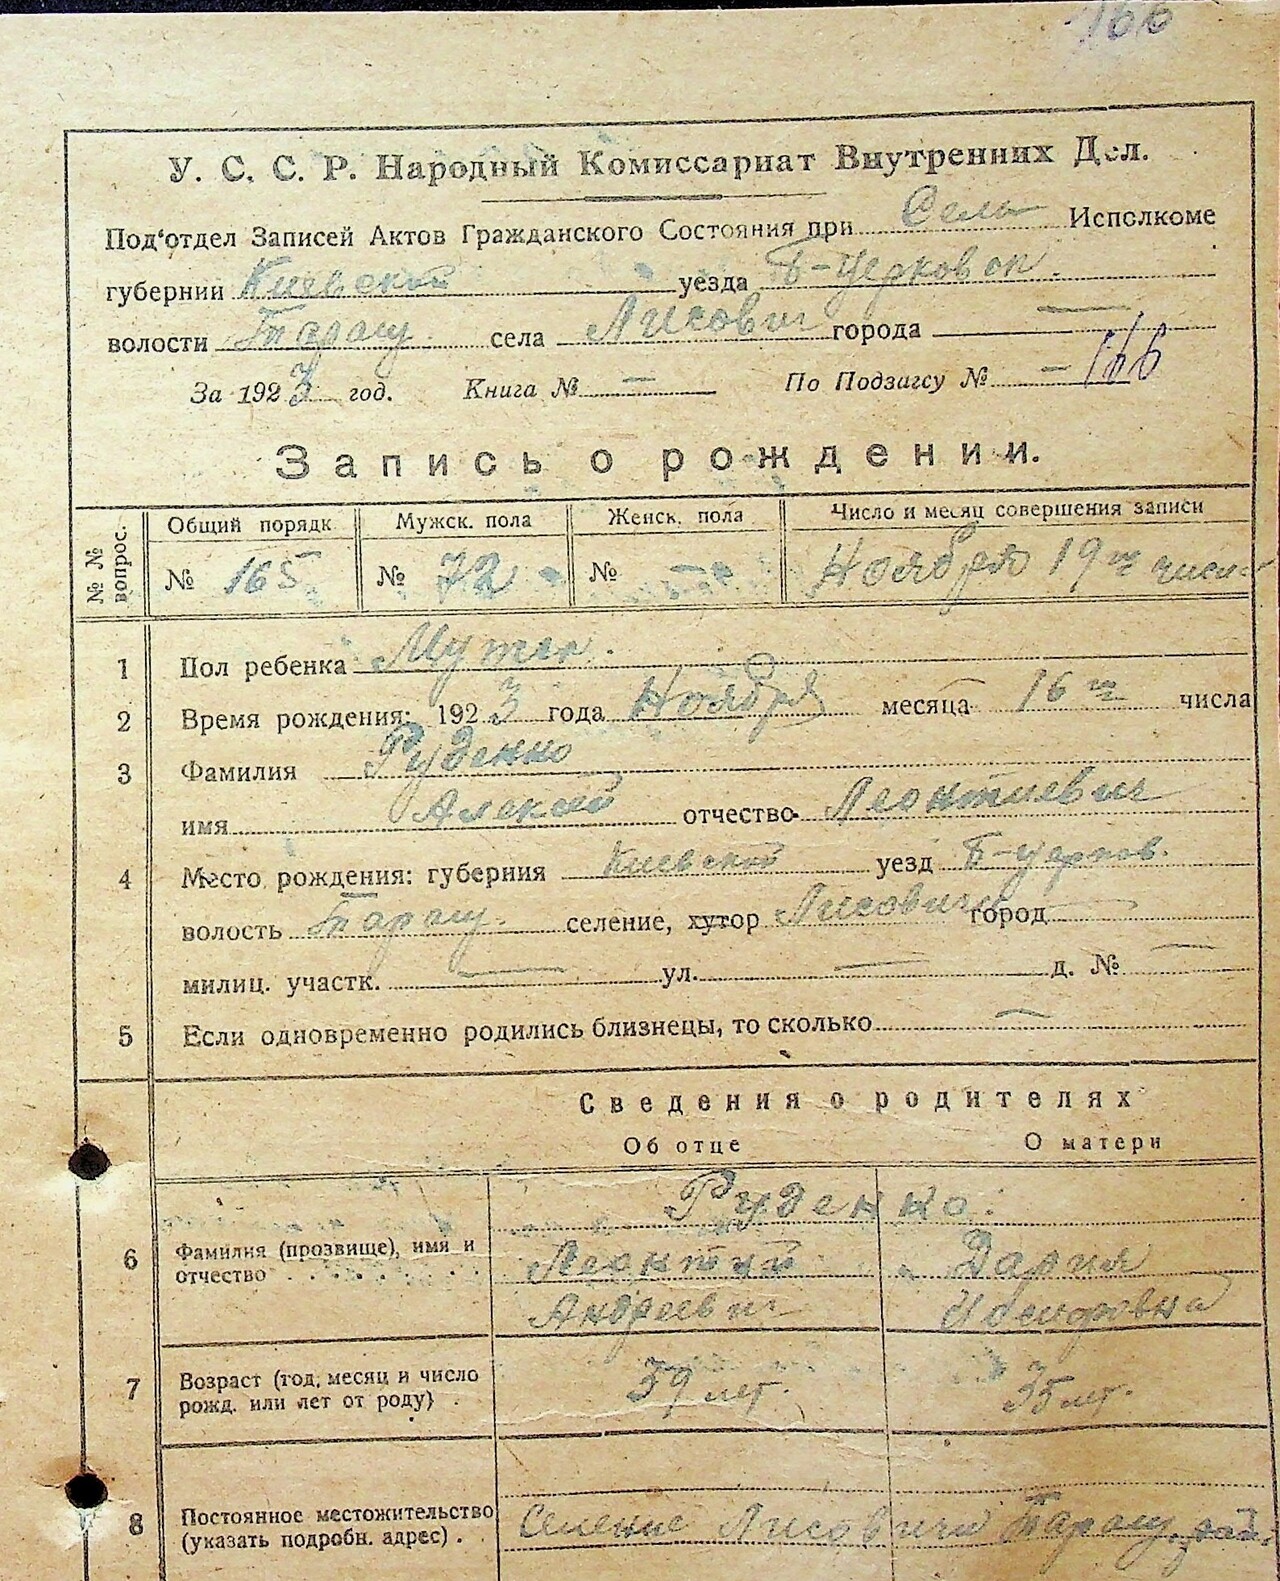 166
У. С. С. Р. Народный Комиссариат Внутренних Дел.
Под'отдел Записей Актов Гражданского Состояния при Сель Исполкоме
губернии Киевской уезда Б-Церковск.
волости Таращ. села Лисович города —
За 1923 год. Книга № — По Подзагсу № — 166
Запись о рождении.
№ № вопрос. Общий порядк Мужск. пола Женск. пола Число и месяц совершения записи
№ 165 № 72 № — Ноября 19го числа
1 Пол ребенка Мужск.
2 Время рождения: 1923 года Ноября месяца 16го числа
3 Фамилия Руденко
имя Алексей отчество Леонтиевич
4 Место рождения: губерния Киевской уезд Б-Церков.
волость Таращ. селение, хутор Лисовичи город —
милиц. участк. — ул. — д. № —
5 Если одновременно родились близнецы, то сколько —
Сведения о родителях
Об отце О матери
Руденко:
6 Фамилия (прозвище), имя и Леонтий Дария
отчество . . . . . . . . Андреевич Иосифовна
7 Возраст (год, месяц и число 39 лет. 35 лет.
рожд. или лет от роду) .
8 Постоянное местожительство Селение Лисовичи Таращ.
(указать подробн. адрес) .